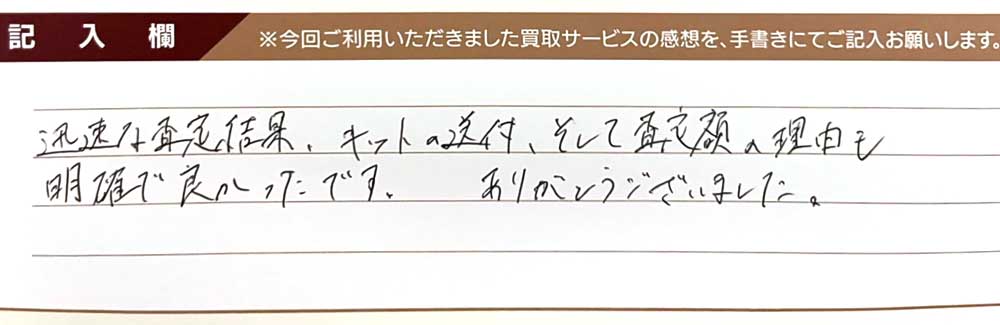 記入欄
※今回ご利用いただきました買取サービスの感想を、手書きにてご記入お願いします。
迅速な査定結果、キットの送付、そして査定額の理由も
明確で良かったです。 ありがとうございました。